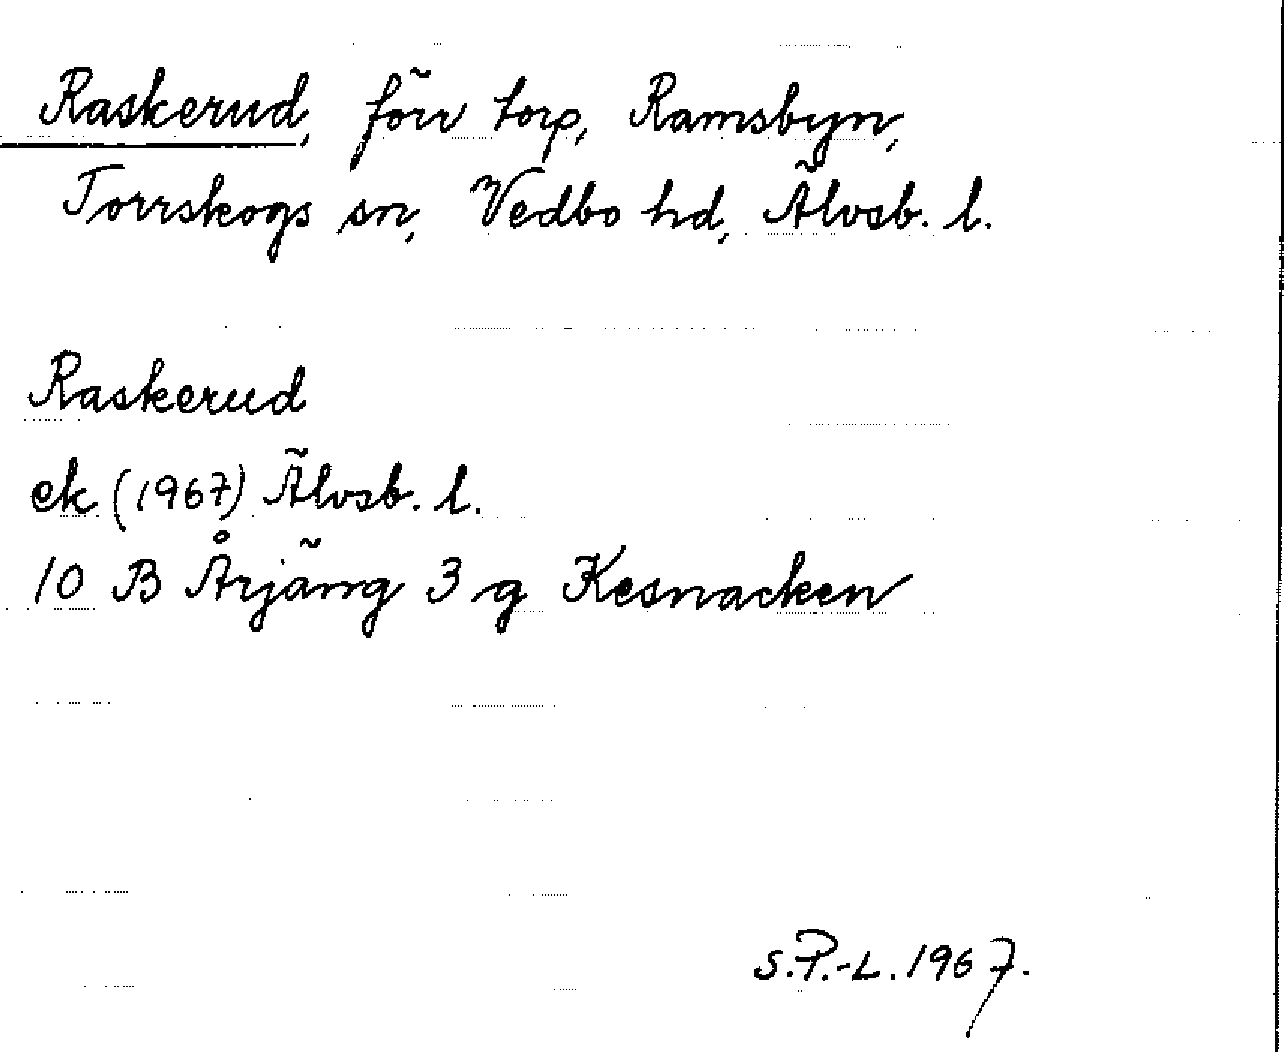 Raskerud, förr torp, Ramsbyn,
Torrskogs sn, Vedbo hd, Älvsb. l.
Raskerud
ek (1967) Älvsb. l.
10 B Årjäng 3 g Kesnacken
S.P.-L. 1967.